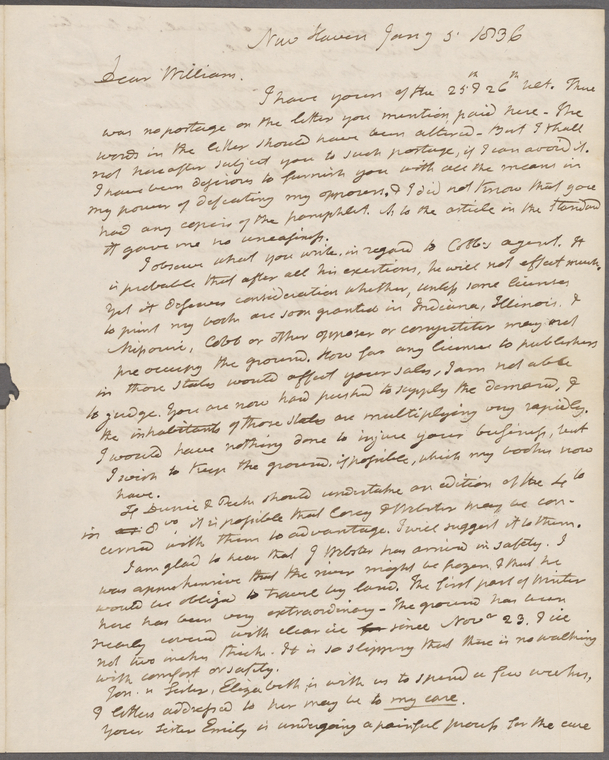 New Haven Jany 5. 1836
Dear William.
I have yours of the 25th & 26th ult. There
was no postage on the letter you mention, paid here - The
words in the letter should have been altered - But I shall
not hereafter subject you to such postage, if I can avoid it.
I have been desirous to furnish you with all the means in
my power of defeating my opposers, & I did not know that you
had any copies of the pamphlet. As to the article in the Standard
it gave me no uneasiness.
I observe what you write, in regard to Cobb's agent. It
is probable that after all his exertions, he will not effect much.
Yet it deserves consideration whether, unless some licenses
to print my books are soon granted in Indiana, Illinois, &
Missouri, Cobb or other opposer or competitor may not
pre occupy the ground. How far any license to publishers
in those states would affect your sales, I am not able
to judge. You are now hard pushed to supply the demand, &
the inhabitants of those states are multiplying very rapidly.
I would have nothing done to injure your business, but
I wish to keep the ground, if possible, which my books now
have.
If Durrie & Peck should undertake an edition of the 4to
in 8vo it is possible that Corey & Webster may be con-
cerned with them to advantage. I will suggest it to them.
I am glad to hear that J Webster has arrived in safety. I
was apprehensive that the river might be frozen, & that he
would be obliged to travel by land. The first part of Winter
here has been very extraordinary - The ground has been
nearly covered with clear ice since Novr 23. I ice
not two inches thick. It is so slipping that there is no walking
with comfort or safety.
Jon.s Sister, Elizabeth is with us to spend a few weeks,
& letters addressed to her may be to my care.
Your Sister Emily is undergoing a painful process for the cure